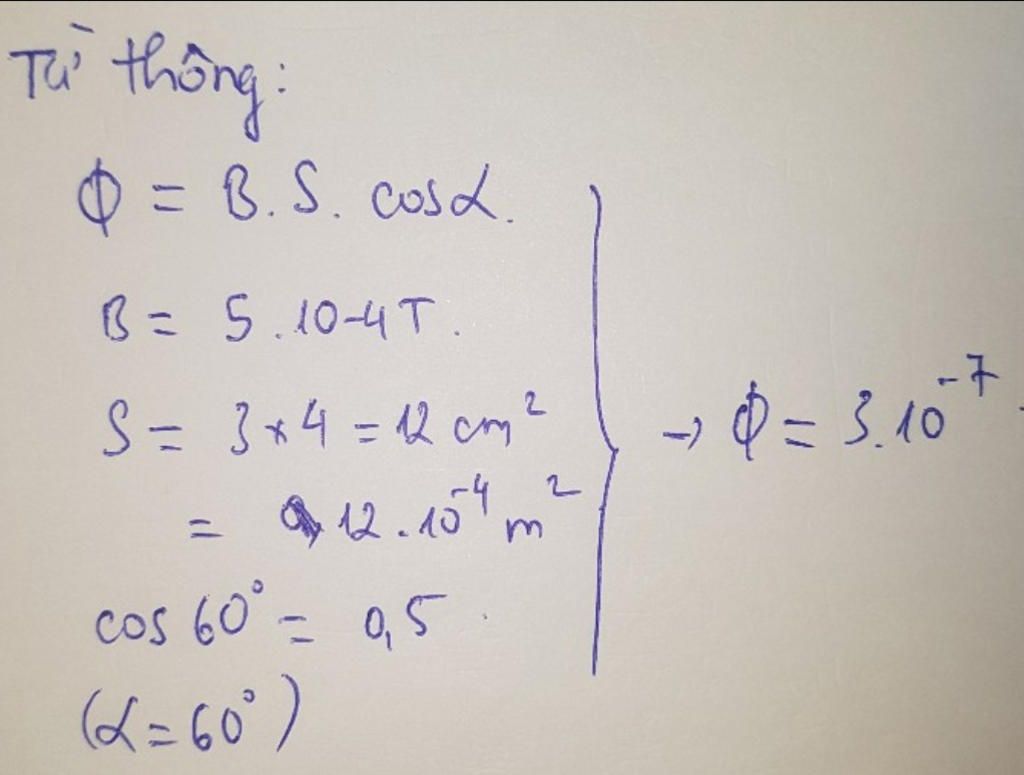 Từ thông:
Φ = B.S. cosα.
B = 5.10-4T.
S = 3x4 = 12 cm²
= 12.10⁻⁴ m²
cos 60° = 0,5.
(α = 60°)
→ Φ = 3.10⁻⁷